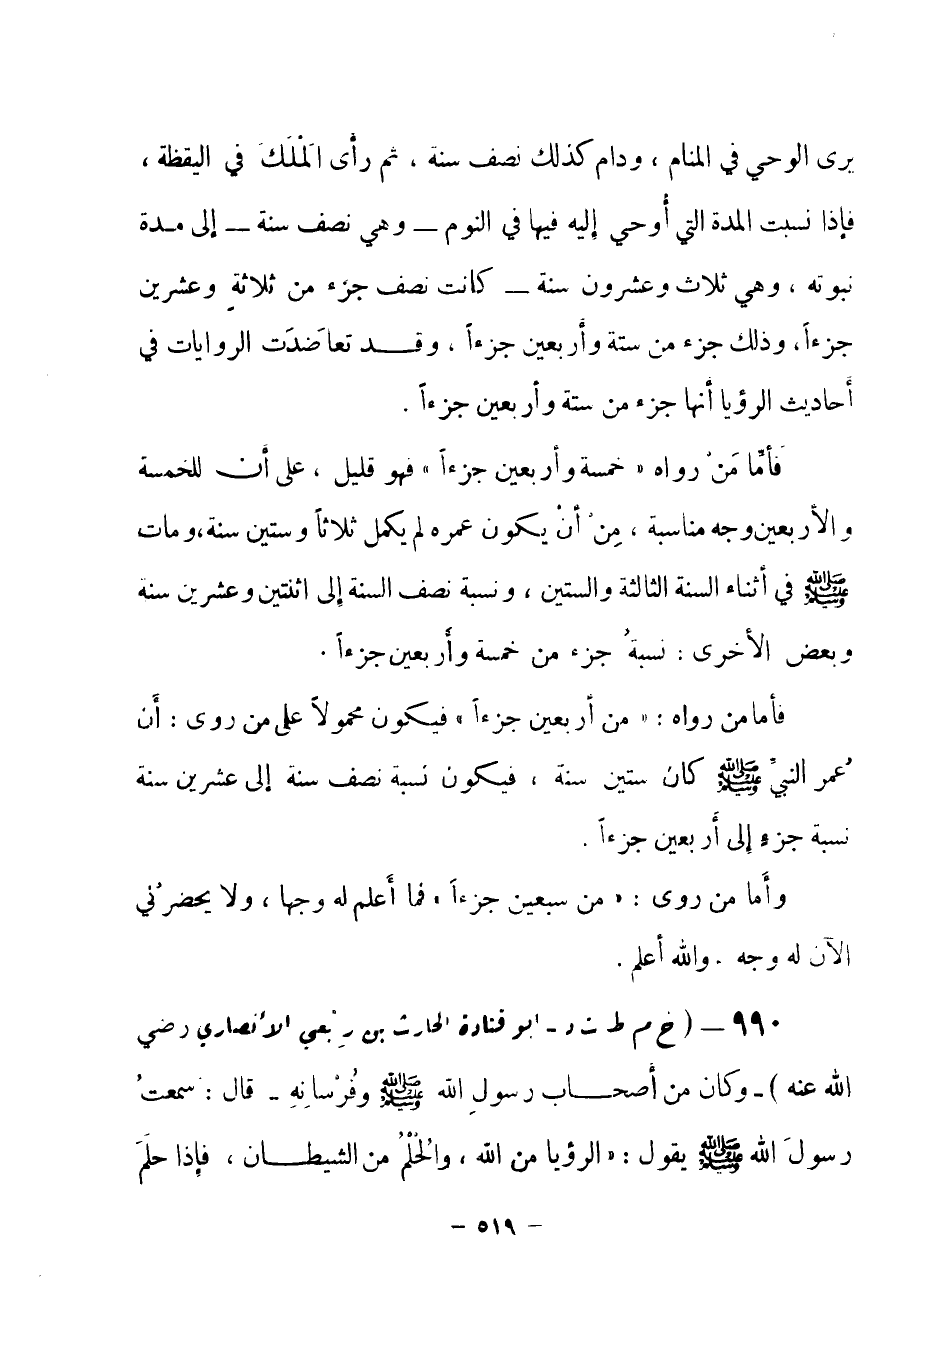 يرى الوحي في المنام ، ودام كذلك نصف سنة ، ثم رأى المْلَكَ في اليقظة ،
فإذا نسبت المدة التي أُوحي إليه فيها في النوم – وهي نصف سنة – إلى مدة
نبوته ، وهي ثلاث وعشرون سنة – كانت نصف جزء من ثلاثةٍ وعشرين
جزءاً، وذلك جزء من ستة وأربعين جزءاً ، وقد تعاضَدَت الروايات في
أحاديث الرؤيا أنها جزء من ستة وأربعين جزءاً .
فَأمَّا مَنْ رواه « خمسة وأربعين جزءاً » فهو قليل ، على أن للخمسة
والأربعين وجه مناسبة ، مِنْ أنْ يكون عمره لم يكمل ثلاثاً وستين سنة، ومات
ﷺ في أثناء السنة الثالثة والستين ، ونسبة نصف السنة إلى اثنتين وعشرين سنة
وبعض الأخرى : نسبةُ جزء من خمسة وأربعين جزءاً .
فأما من رواه : « من أربعين جزءاً » فيكون محمولاً على من روى : أن
عُمر النبيِّ ﷺ كان ستين سنة ، فيكون نسبة نصف سنة إلى عشرين سنة
نسبة جزء إلى أربعين جزءاً .
وأما من روى : « من سبعين جزءاً » فما أعلم له وجها ، ولا يحضرُني
الآن له وجه . والله أعلم .
٩٩٠ – ( خ م ط ت د - أبو قتادة الحارث بن ربعي الأنصاري رضي
الله عنه ) - وكان من أصحاب رسولِ الله ﷺ وفُرْسانِهِ - قال : سمعتُ
رسولَ الله ﷺ يقول : « الرؤيا من الله ، والْحُلْمُ من الشيطان ، فإذا حلَمَ
– ٥١٩ –